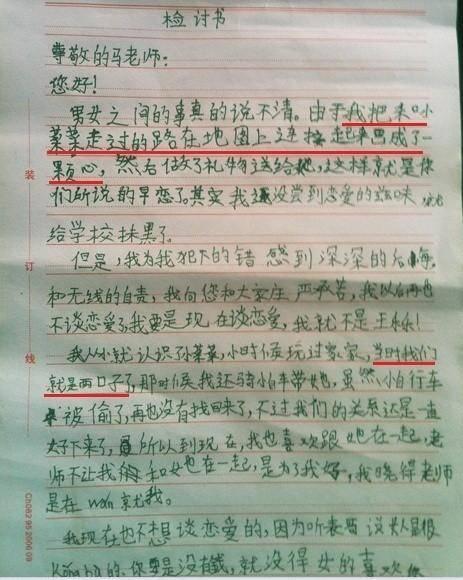 检讨书
尊敬的马老师：
您好！
男女之间的事真的说不清。由于我把和小
菜菜走过的路在地图上连接起来画成了一
颗心，然后做了礼物送给她，这样就是你
们所说的早恋了。其实我还没尝到恋爱的滋味，就
给学校抹黑了。
但是，我为我犯下的错感到深深的后悔
和无线的自责，我向您和大家庄严承若，我以后再也
不谈恋爱了，我要是现在谈恋爱，我就不是王栎！
我从小就认识孙菜菜，小时候玩过家家，当时我们
就是两口子了，那时候我还骑小白车带她，虽然小白行车
被偷了，再也没有找回来了，不过我们的关系还是一直
好下来了，所以到现在，我也喜欢跟她在一起，老
师不让我和她在一起，是为了我好，我晓得老师
是在wan救我。
我现在也不想谈恋爱的，因为听表哥说女人是很
kǒng bù的，你要是没有钱，就没得女的喜欢你
装
订
线